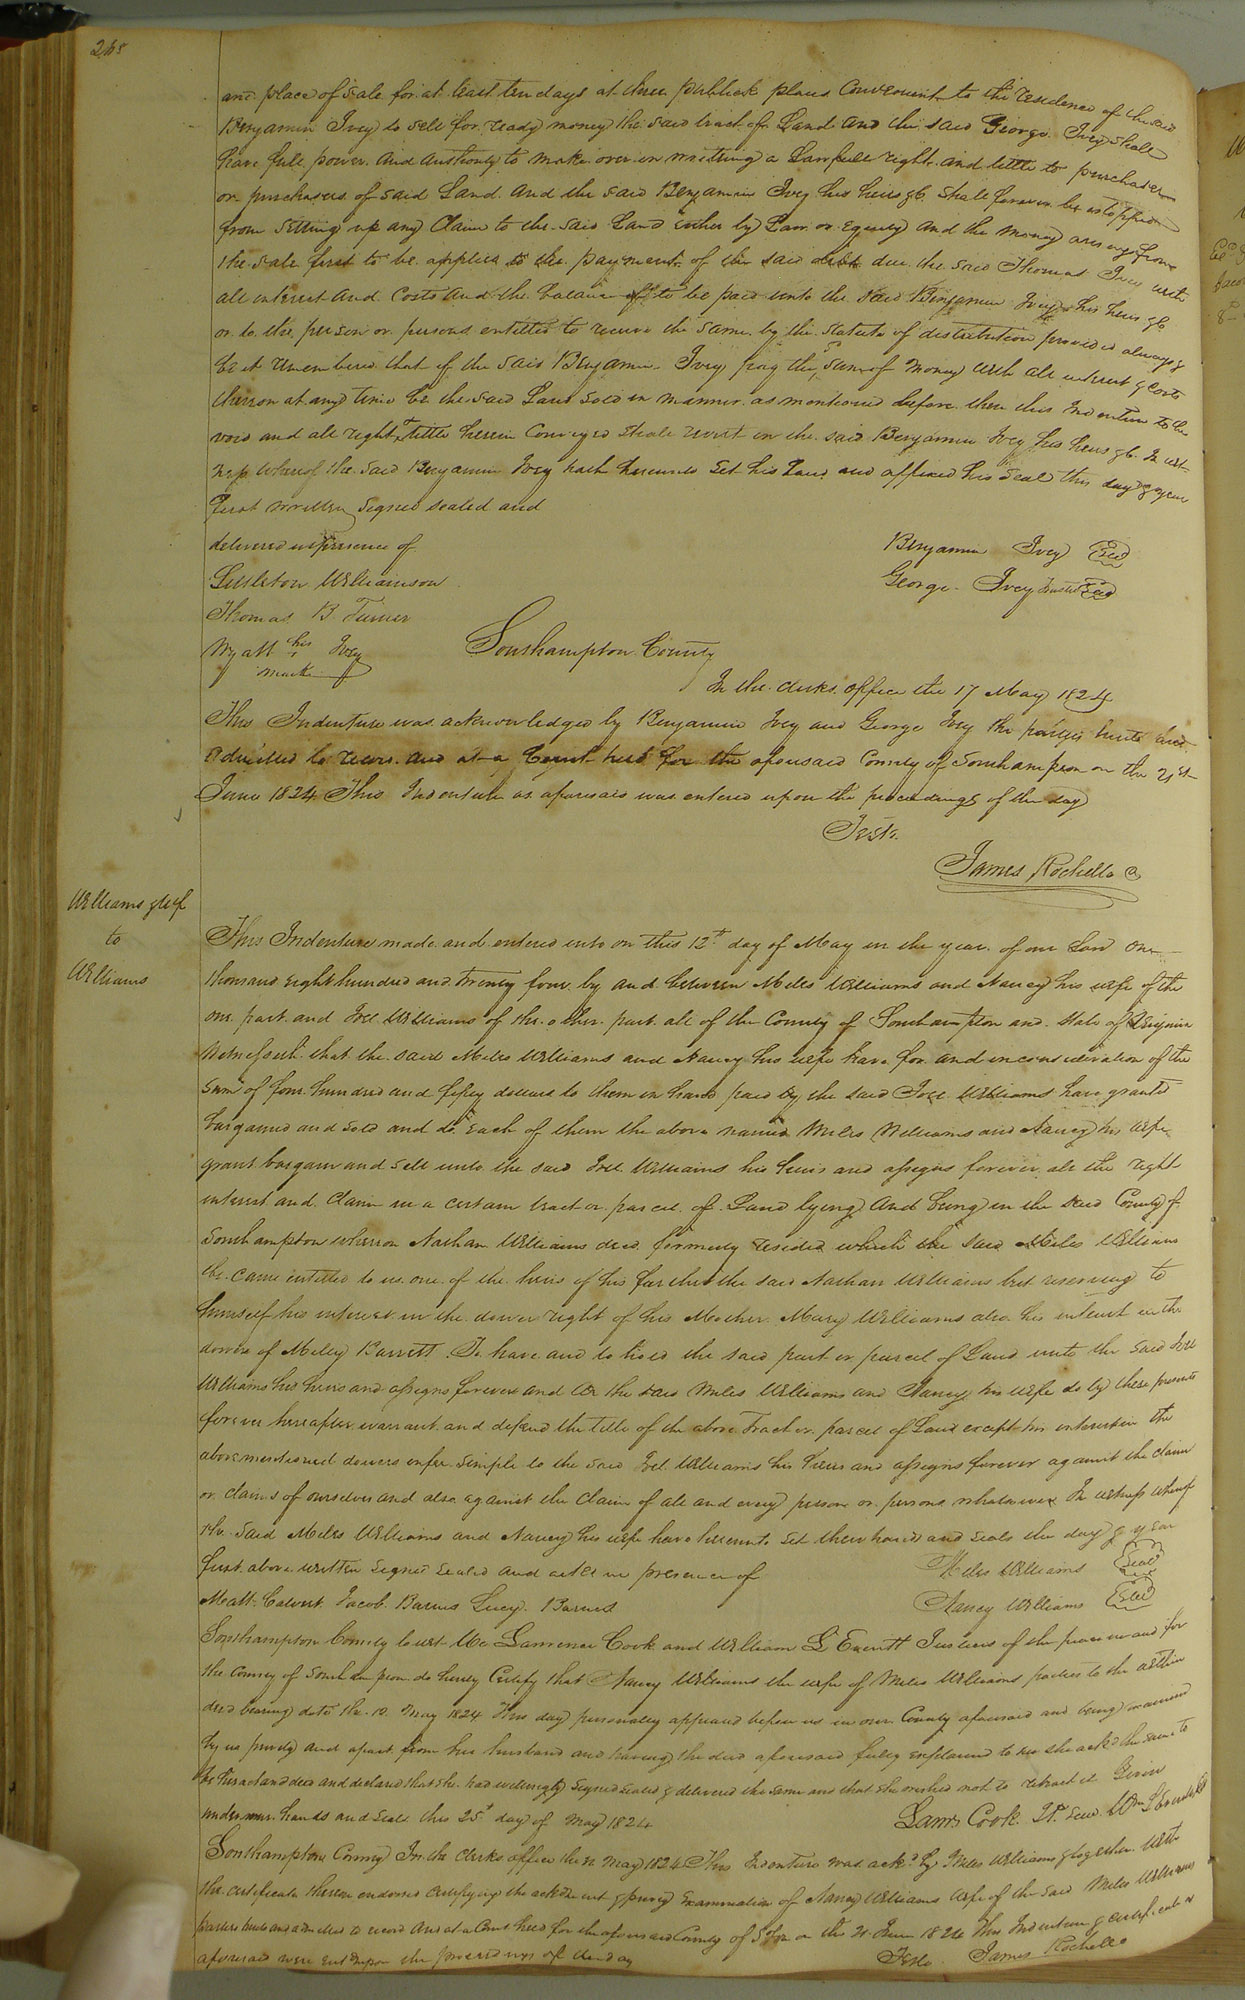 265
and place of sale for at least ten days at three publick places convenient to the residence of the said
Benjamin Ivey to sell for ready money the said tract of Land and the said George Ivey shall
have full power and authority to make over in writing a Lawfull right and tittle to purchaser
or purchasers of said Land and the said Benjamin Ivey his heirs &c shall forever be estopped
from setting up any claim to the said Land either by Law or Equity and the money arising from
the sale first to be applied to the payment of the said debt due the said Thomas Ivey with
all interest and costs and the balance to be paid unto the said Benjamin Ivey his heirs &c
or to the person or persons entitled to receive the same by the statute of distribution provided always &
be it remembered that if the said Benjamin Ivey pay the sum of money with all interest & costs
thereon at any time be the said Land sold in manner as mentioned before then this Indenture to be
void and all right & tittle herein conveyed shall revert in the said Benjamin Ivey his heirs &c In wit-
ness whereof the said Benjamin Ivey hath hereunto set his hand and affixed his seal this day & year
first written Signed sealed and
delivered in presence of
Benjamin Ivey Seal
Littleton Williamson
George Ivey Trustee Seal
Thomas B Turner
Wyatt his Ivey
mark
Southampton County
In the clerks office the 17 May 1824
This Indenture was acknowledged by Benjamin Ivey and George Ivey the parties hereto and
admitted to record and at a Court held for the aforesaid County of Southampton on the 21st
June 1824 This Indenture as aforesaid was entered upon the proceedings of the day
Teste
James Rochelle
Williams & wife
to
Williams
This Indenture made and entered into on this 12th day of May in the year of our Lord one
thousand eight hundred and twenty four by and between Miles Williams and Nancy his wife of the
one part and Joel Williams of the other part all of the County of Southampton and State of Virginia
Witnesseth that the said Miles Williams and Nancy his wife have for and in consideration of the
sum of four hundred and fifty dollars to them in hand paid by the said Joel Williams have granted
bargained and sold and do each of them the above named Miles Williams and Nancy his wife
grant bargain and sell unto the said Joel Williams his heirs and assigns forever all the right
interest and claim in a certain tract or parcel of Land lying and being in the said County of
Southampton whereon Nathan Williams decd. formerly resided which the said Miles Williams
be came intitled to as one of the heirs of his farther the said Nathan Williams but reserving to
himself his interest in the dower right of his Mother Mary Williams also his interest in the
dower of Miley Barrett To have and to hold the said part or parcel of Land unto the said Joel
Williams his heirs and assigns forever and We the said Miles Williams and Nancy his wife do by these presents
forever hereafter warrant and defend the title of the above Tract or parcel of Land except his interest in the
above mentioned dowers in fee simple to the said Joel Williams his heirs and assigns forever against the claim
or claims of ourselves and also against the claim of all and every person or persons whatsoever In witness whereof
the said Miles Williams and Nancy his wife have hereunto set their hands and seals the day & year
first above written signed sealed and in presence of
Miles Williams Seal
Matt. Calvert Jacob Barnes Lucy Barnes
Nancy Williams Seal
Southampton County to wit We Lawrence Cook and William Justices of the peace in and for
the County of Southampton do hereby Certify that Nancy Williams the wife of Miles Williams parties to the within
deed bearing date the May 1824 This day personally appeared before us in our County aforesaid and being examined
by us privily and apart from her husband and having the deed aforesaid fully explained to her she ackd the same to
be her act and deed and declared that she had willingly signed sealed & delivered the same and that she wished not to retract it Given
under our hands and seals this 25th day of May 1824
Cook
Southampton County In the Clerks office the May 1824 This Indenture was ackd by Miles Williams & together with
the certificate thereon endorsed certifying the & privy Examination of Nancy Williams wife of the said Miles Williams
parties hereto and admitted to record And at a Court held for the aforesaid County of on the 21 June 1824 This Indenture & certificate as
aforesaid were entd upon the proceedings of the day
Teste James Rochelle